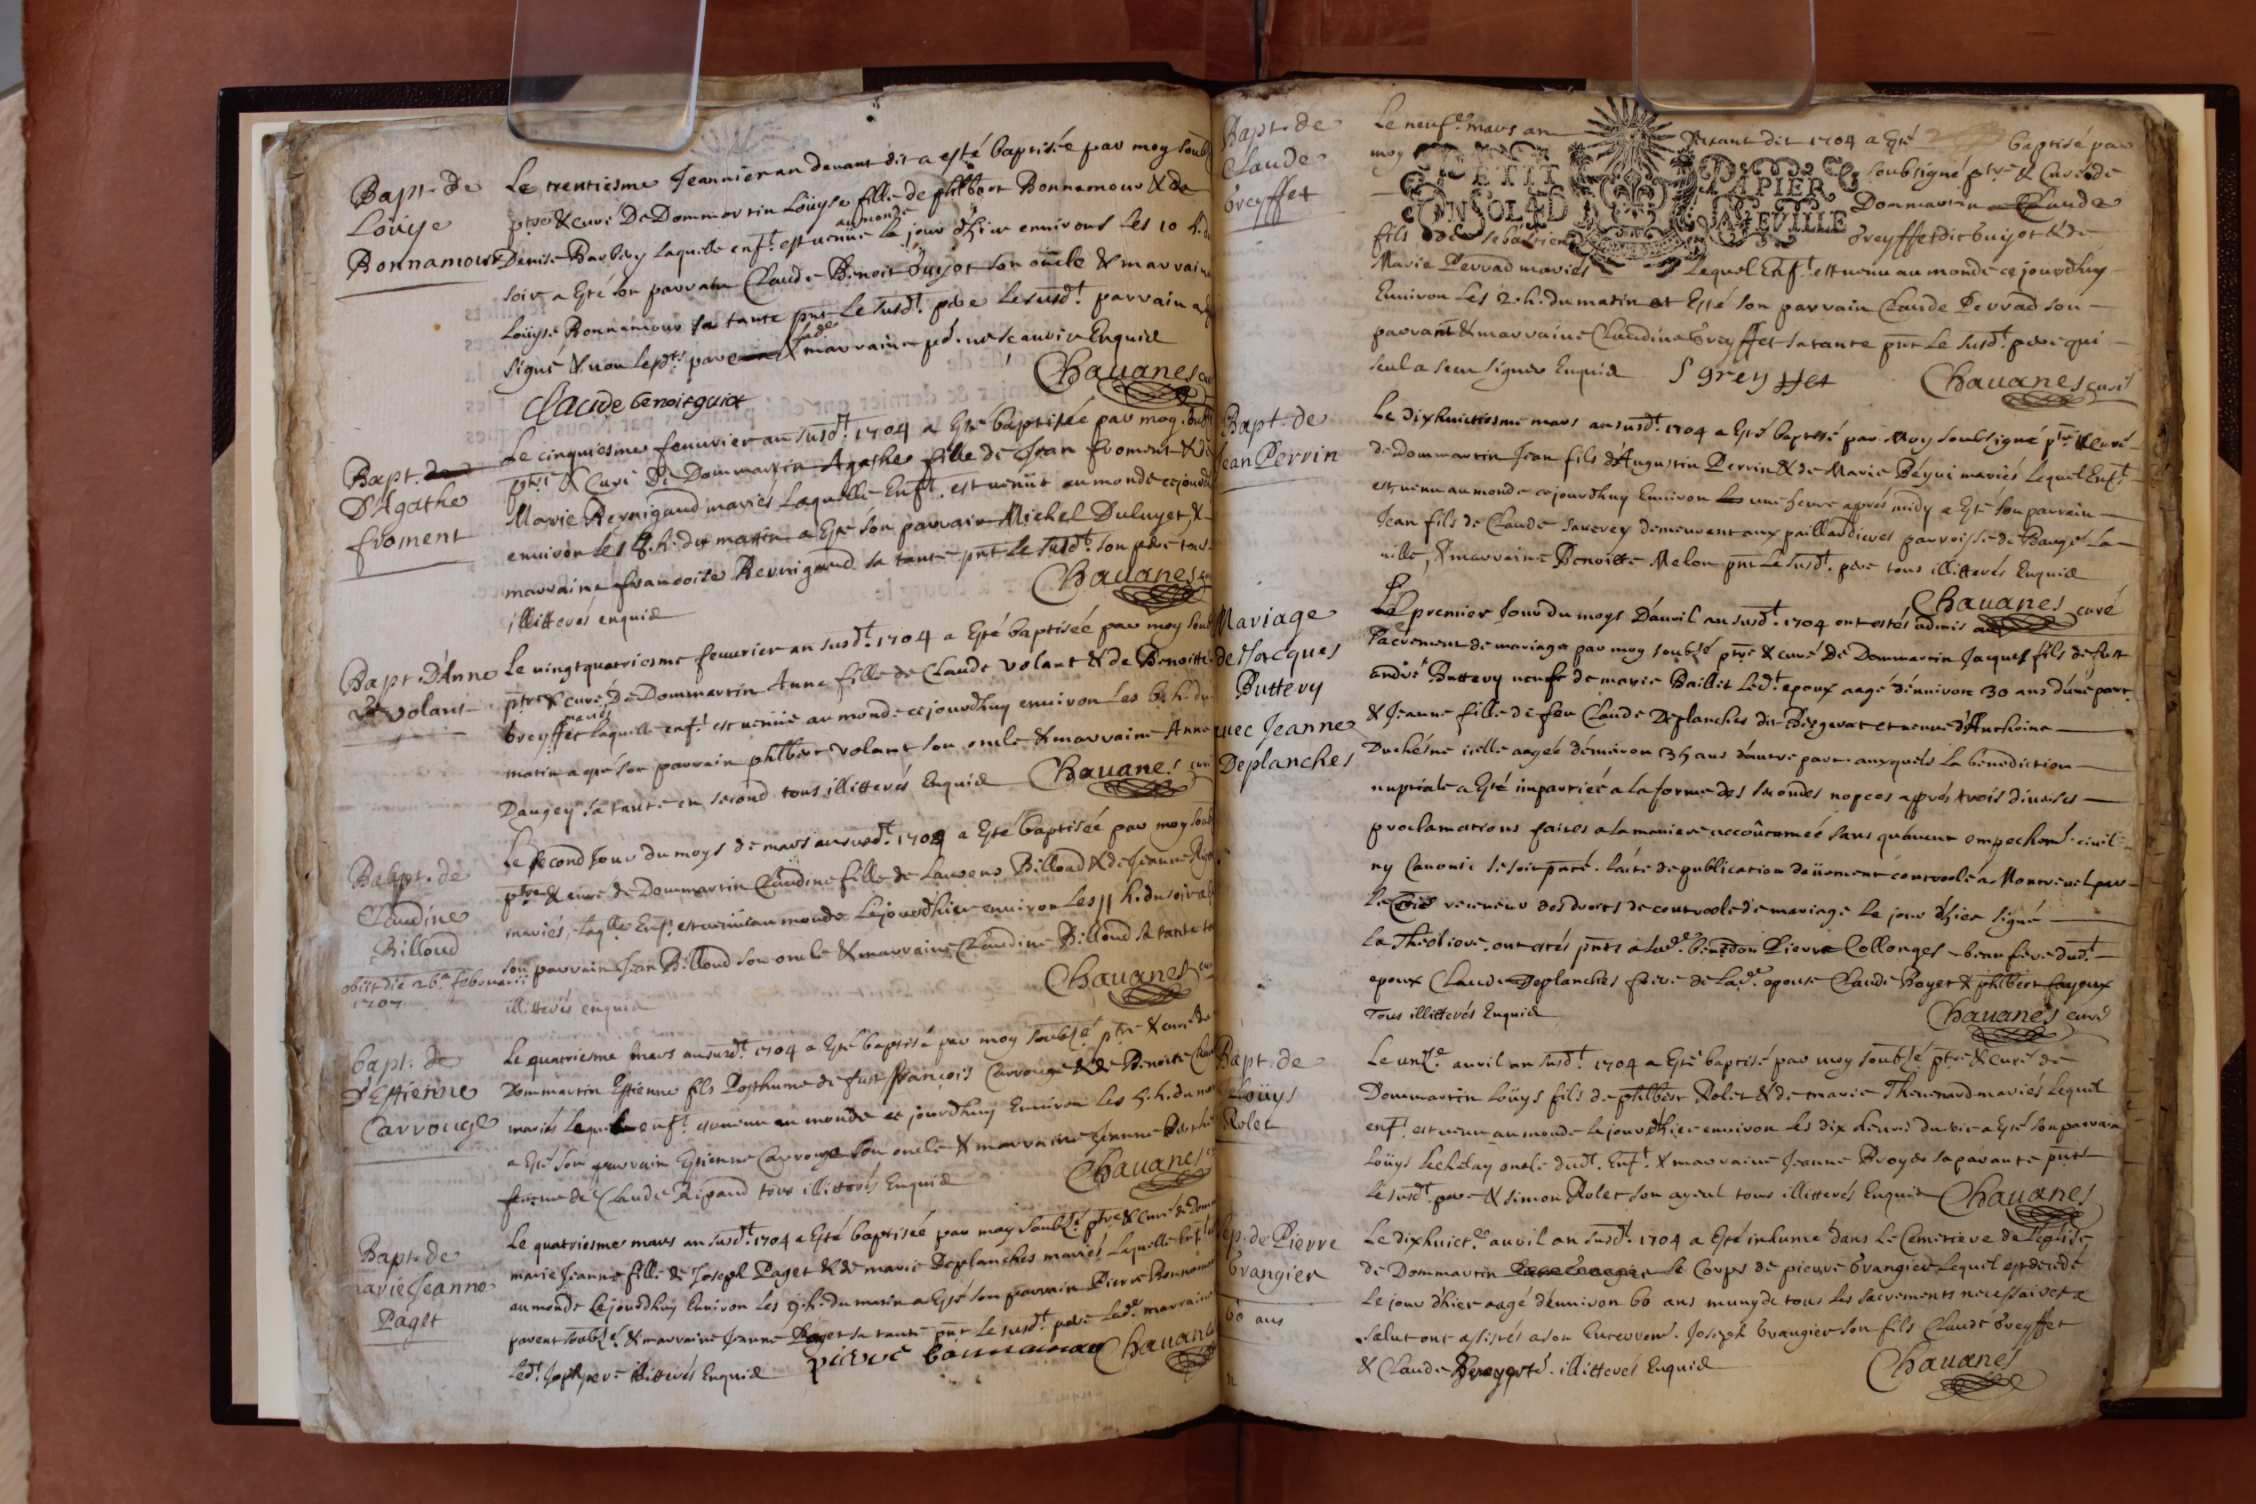 Bapt. de
Loüyse
Bonnamour
Le trentiesme Jeannier an devant dit a esté baptisée par moy soub
ptre & curé De Dommartin Loüyse fille de philbert Bonnamour & de
au monde
Denise Barbery laquelle enft. est venüe le jour d'hier environ les 10 h. du
soir a Esté son parrain Claude Benoit Guyot son oncle & marraine
Loüyse Bonnamour sa tante pnt le susdt. pere le susdt. parrain a
signé & non les marraine pour ne scavoir Enquid
Chauanes
Claude benoit guiot
Bapt.
D'Agathe
froment
Le cinquiesme feuurier an susdt. 1704 a Esté baptisée par moy
ptre & Curé De Dommartin Agathe fille de Jean froment & de
Marie Revnigaud mariés Laquelle Enft. est venüe au monde cejourd
environ les 8. h. du matin a Esté son parrain Michel Duluyer, &
marraine francoise Revnigaud sa tante pnt le susdt. son pere tous
illitterés enquid
Chauanes
Bapt D'Anne
volant
Le vingtquatriesme feuurier an susdt. 1704 a Esté baptisée par moy soub
ptre & curé de Dommartin Anne fille de Claude volant & de Benoitte
mariés
Greyffet laquelle enft. est venüe au monde cejourdhuy environ les 6 h. du
matin a esté son parrain philbert volant son oncle & marraine Anne
Daugey sa tante en second tous illitterés Enquid
Chauanes
Bapt. de
Claudine
Billoud
obiit die 26a. februarii
1707
Le second Jour du moys de mars an susdt. 1704 a Esté baptisée par moy soub
ptre & curé de Dommartin Claudine fille de Laurens Billoud & de Jeanne
mariés, laqlle Enft. est venüe au monde Le jourdhier environ les 11 h. du soir a
son parrain Jean Billoud son oncle & marraine Claudine Billoud sa tante
illitterés enquid
Chauanes
bapt. de
D'Estienne
Carrouge
Le quatriesme mars an susdt. 1704 a Esté baptisé par moy soubzé ptre & curé de
Dommartin Estienne fils Posthume de fust françois Carrouge & de Benoite
mariés Lequel enft. est venu au monde ce jourdhuy Environ les 5. h. du
a Esté son parrain Estienne Carrouge son oncle & marraine Jeanne
femme de Claude Ripaud tous illitterés Enquid
Chauanes
Bapt. de
marie Jeanne
Paget
Le quatriesme mars an susdt. 1704 a Esté baptisée par moy soubzé ptre & Curé de
marie Jeanne fille de Joseph Paget & de marie Deplanches mariés Laquelle Enft.
au monde Cejourdhuy Environ les 9. h. du matin a Esté son parrain Pierre Bonnamour
parent soubzé. & marraine Jeanne Paget sa tante pnt le susdt. pere Lade marraine
Ledt. Joseph pere illitterés Enquid
pierre bonnamour
Chauanes
Bapt. de
Claude
Greyffet
Le neufe mars an devant dit 1704 a Esté baptisé par
moy soubsigné ptre & Curé de
PETIT PAPIER
CONSOLÉD GNEVILLE
Dommartin Claude
fils de sebastien Greyffet dit buijot & de
Marie Perrad mariés Lequel Enft. est venu au monde cejourdhuy
Environ Les 2. h. du matin et Esté son parrain Claude Perrad son
parrain & marraine Claudine Greyffet sa tante pnt Le susdt. pere qui
seul a sceu signer Enquid
S greyffet
Chauanes curé
Bapt. de
Jean Perrin
Le dixhuictiesme mars an susdt. 1704 a Esté baptisé par Moy soubsigné ptre & curé
de Dommartin Jean fils d'Augustin Perrin & de Marie Péqui mariés Lequel Enft.
est venu au monde cejourdhuy Environ une heure aprés midy a Esté son parrain
Jean fils de Claude Saverey demeurent aux paillardieres parroisse de Baugé La
uille, & marraine Benoitte Melon pnt Le susdt. pere tous illitterés Enquid
Chauanes curé
Mariage
de Jacques
Buttery
avec Jeanne
Deplanches
Le premier Jour du moys D'auril an susdt. 1704 ont estés admis au
sacrement de mariage par moy soubzé ptre & curé De Dommartin Jacques fils de fust
andré Buttery veuf de marie Baillet Ledt. epoux aagé d'enuiron 30 ans d'une part
& Jeanne fille de feu Claude Deplanches dit Bergerat et veuve d'Anthoine
Duchesne icelle aagée d'enuiron 35 ans d'autre part. auxquels la bénédiction
nuptiale a Esté impartiée a la forme des secondes nopces après trois diverses
proclamations faites a la maniere accoûtumée sans qu'aucun empechemt. civil
ny Canonic se soit pnté. l'acte de publication deüement controolé a Montrevel par
le receveur des droits de controole de mariage Le jour d'hier signé
La Théoliere. ont estés pnts a lade. benedon Pierre Collonges beau frere dudt.
epoux Claude Deplanches frere de Lade. epouse Claude Boyer & philbert fayoux
Tous illitterés Enquid
Chauanes curé
Bapt. de
Loüys
Rolet
Le unze. auril an susdt. 1704 a Esté baptisé par moy soubzé ptre & Curé de
Dommartin Loüys fils de philbert Rolet & de marie Thevenard mariés Lequel
enft. est venu au monde le jourdhier environ les dix heures du soir a Esté son parrain
Loüys oncle dudt. Enft. & marraine Jeanne Broyer sa parante pnts
Le susdt. pere & simon Rolet son ayeul tous illitterés Enquid
Chauanes
Sep. de Pierre
Grangier
60 ans
Le dixhuicte. auril an susdt. 1704 a Esté inhumé dans Le Cemetiere de L'eglise
de Dommartin le Corps de pierre Grangier Lequel est decedé
Le jour d'hier aagé d'enuiron 60 ans muny de tous les sacrements necessaires a
salut ont assistés a son Enterremt. Joseph Grangier son fils Claude Greyffet
& Claude illitterés Enquid
Chauanes